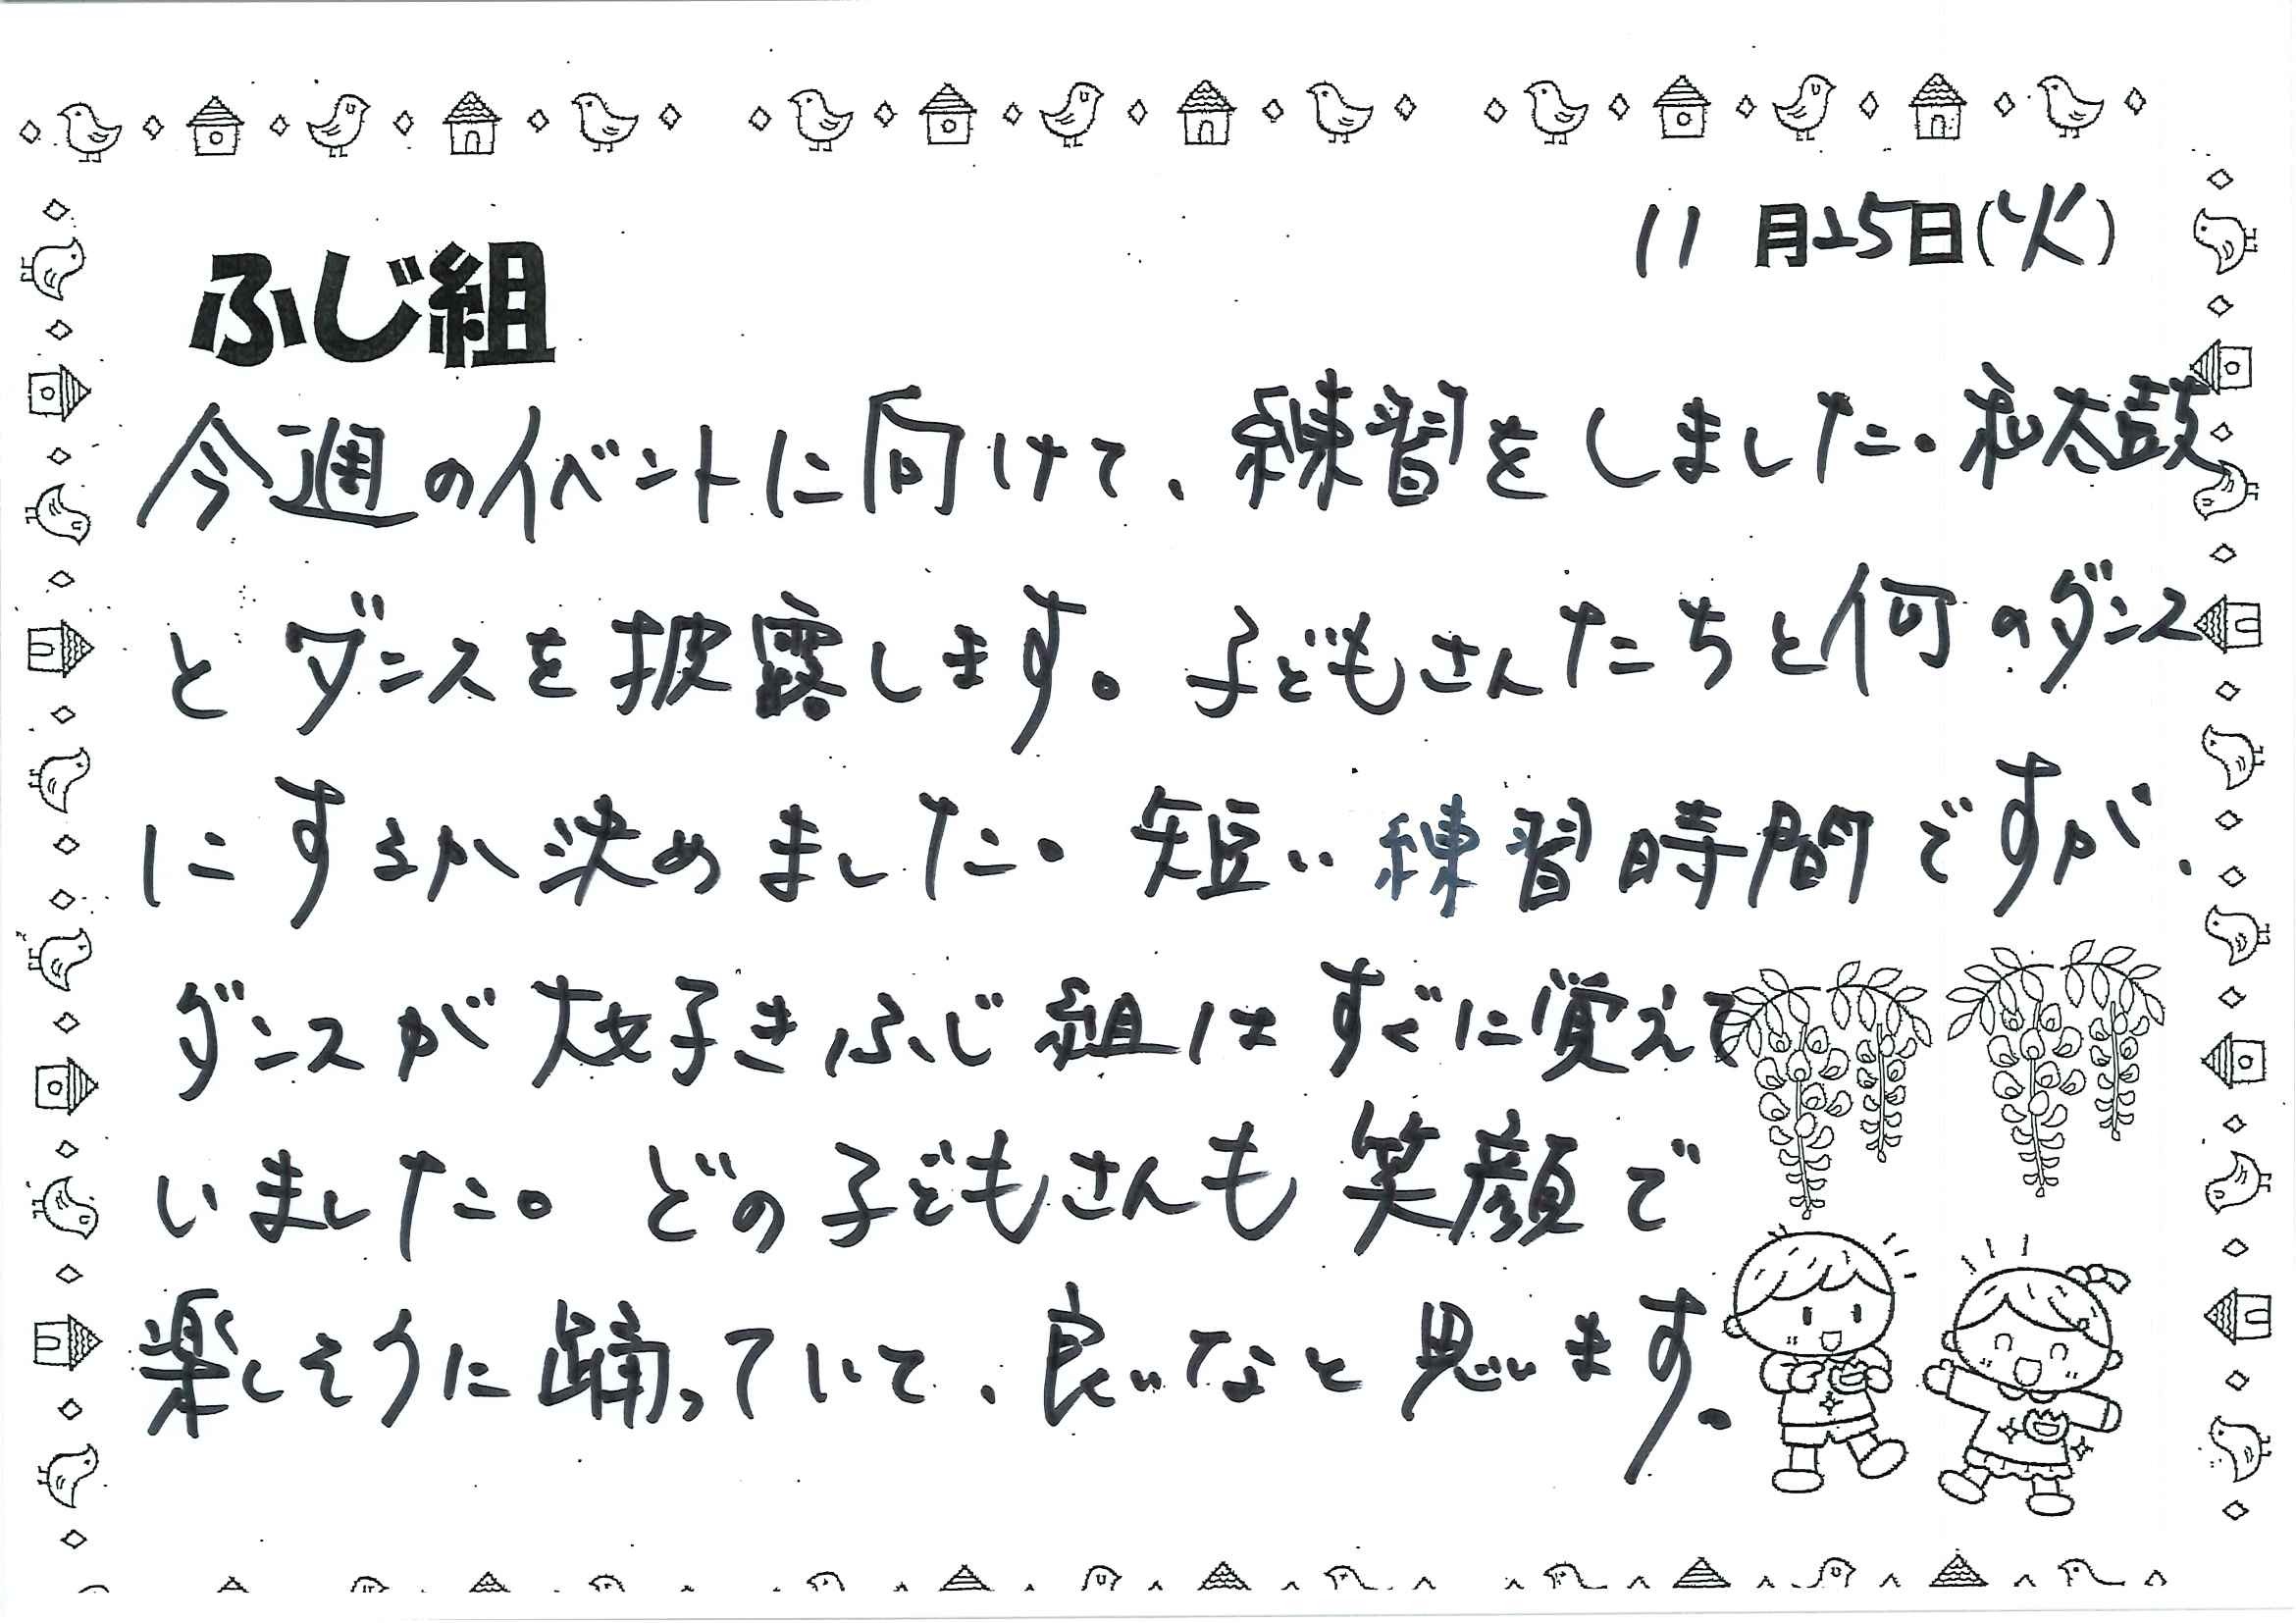 11月25日(火)
ふじ組
今週のイベントに向けて、練習をしました。和太鼓
とダンスを披露します。子どもさんたちと何のダンス
にするか決めました。短い練習時間ですが、
ダンスが大好きふじ組はすぐに覚えて
いました。どの子どもさんも笑顔で
楽しそうに踊っていて、良いなと思います。